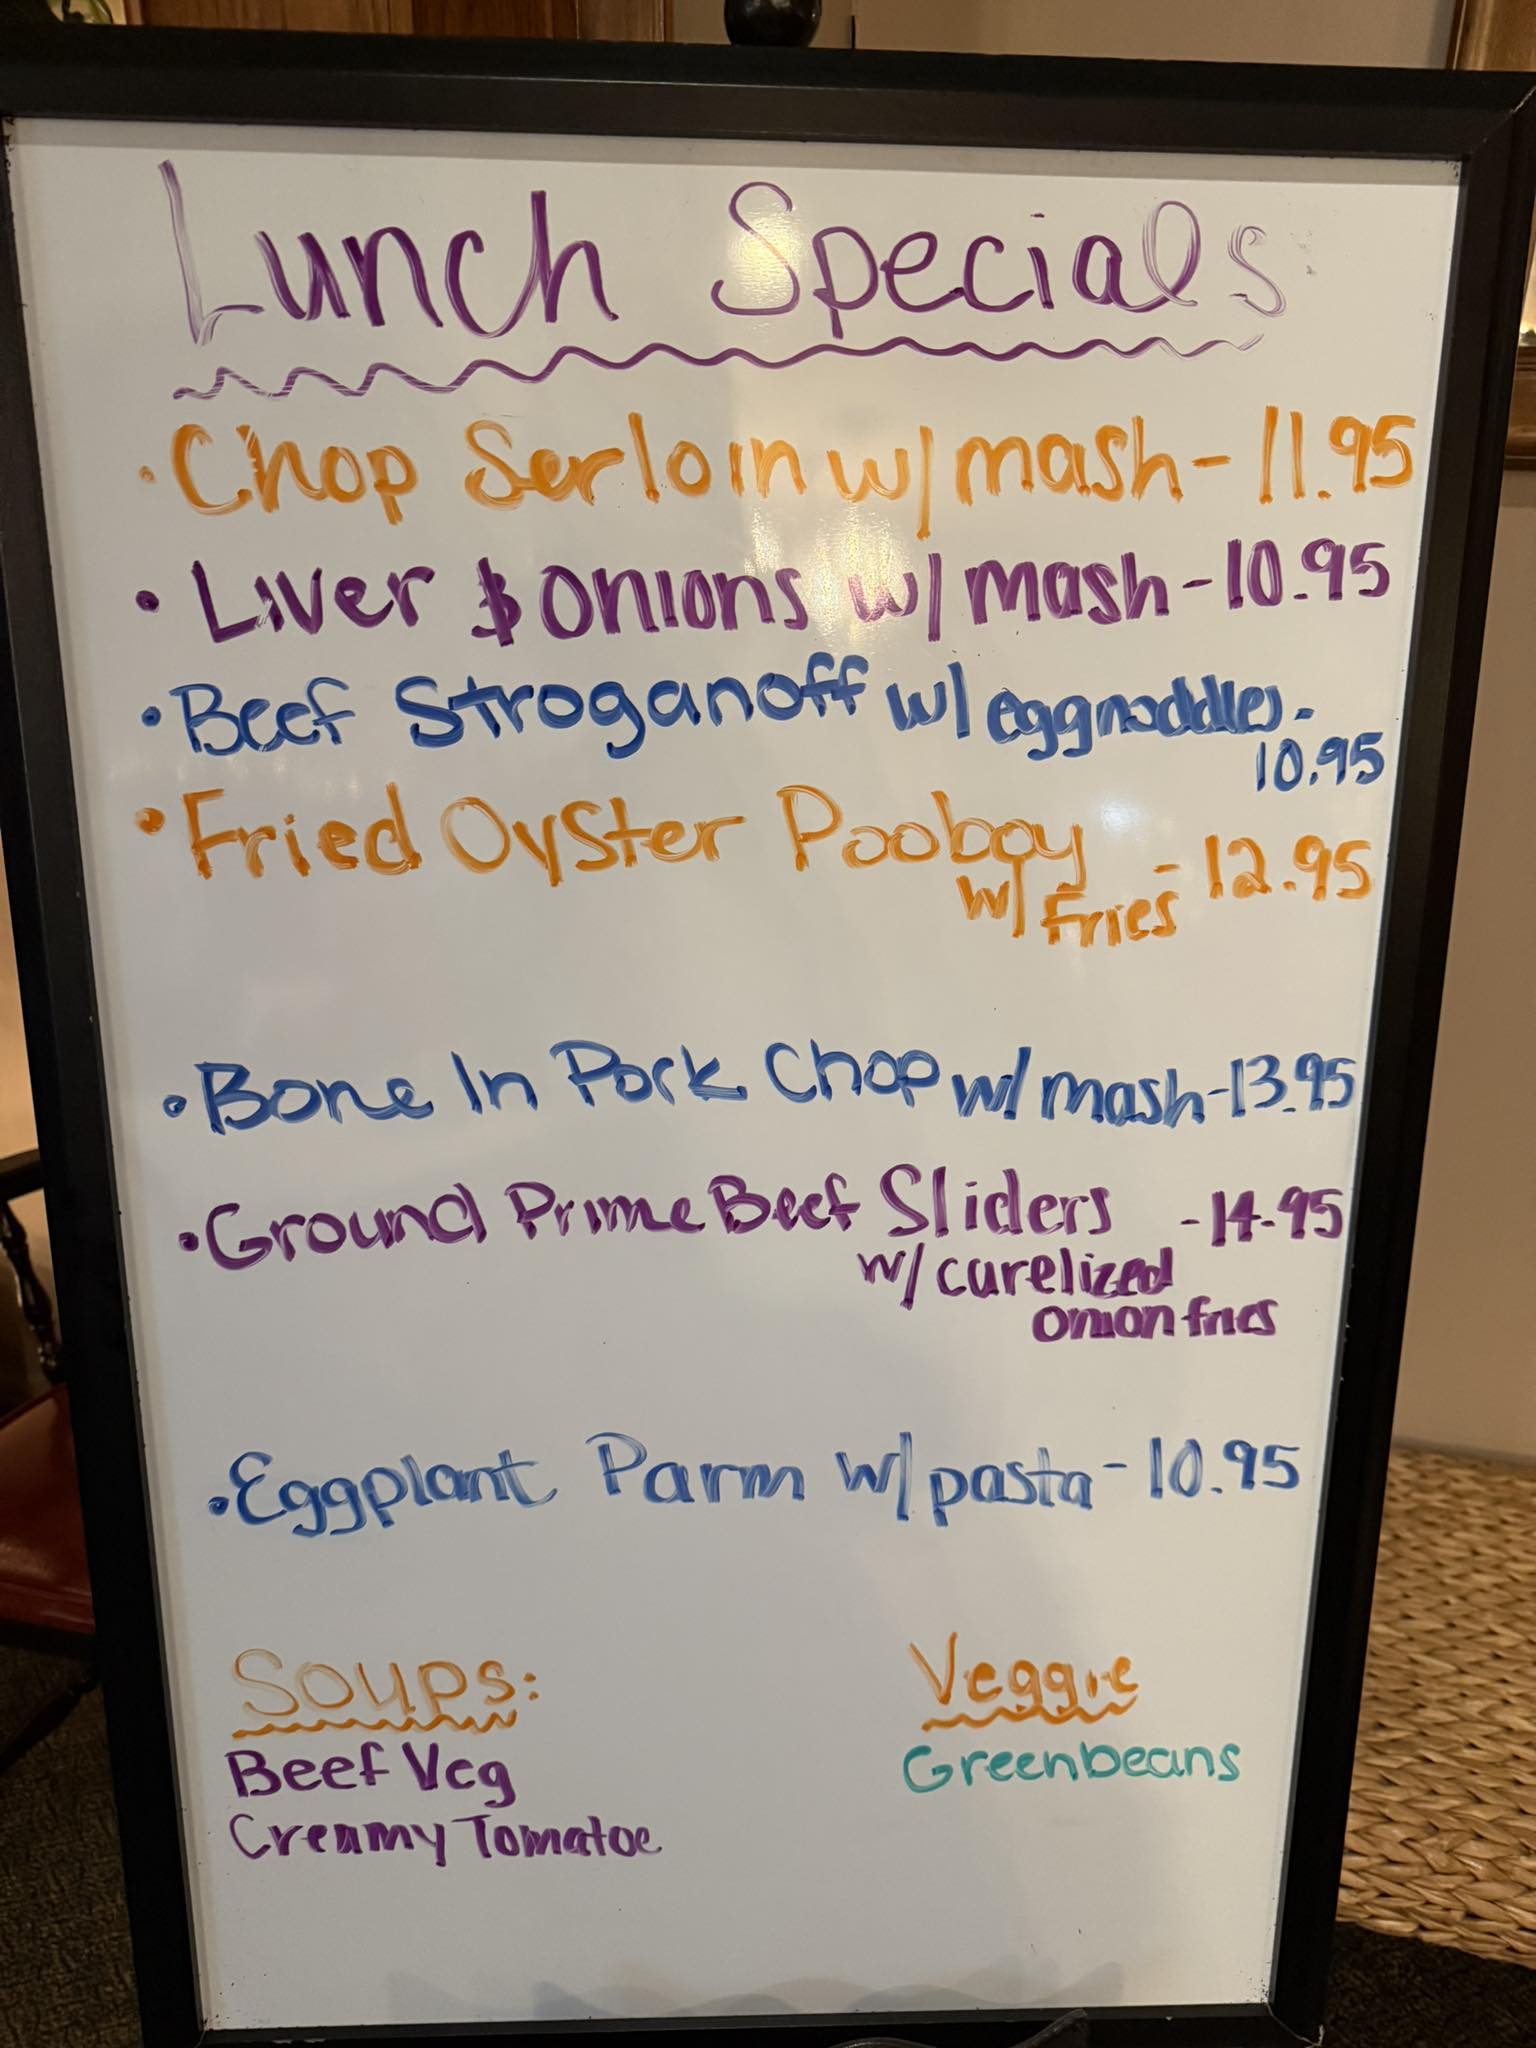 Lunch Specials
• Chop Serloin w/ mash - 11.95
• Liver & onions w/ mash - 10.95
• Beef Stroganoff w/ eggnoddles -
10.95
• Fried Oyster Pooboy - 12.95
w/ Fries
• Bone In Pork Chop w/ mash - 13.95
• Ground Prime Beef Sliders - 14.95
w/ carelized
onion fries
• Eggplant Parm w/ pasta - 10.95
Soups: Veggie
Beef Veg Greenbeans
Creamy Tomatoe